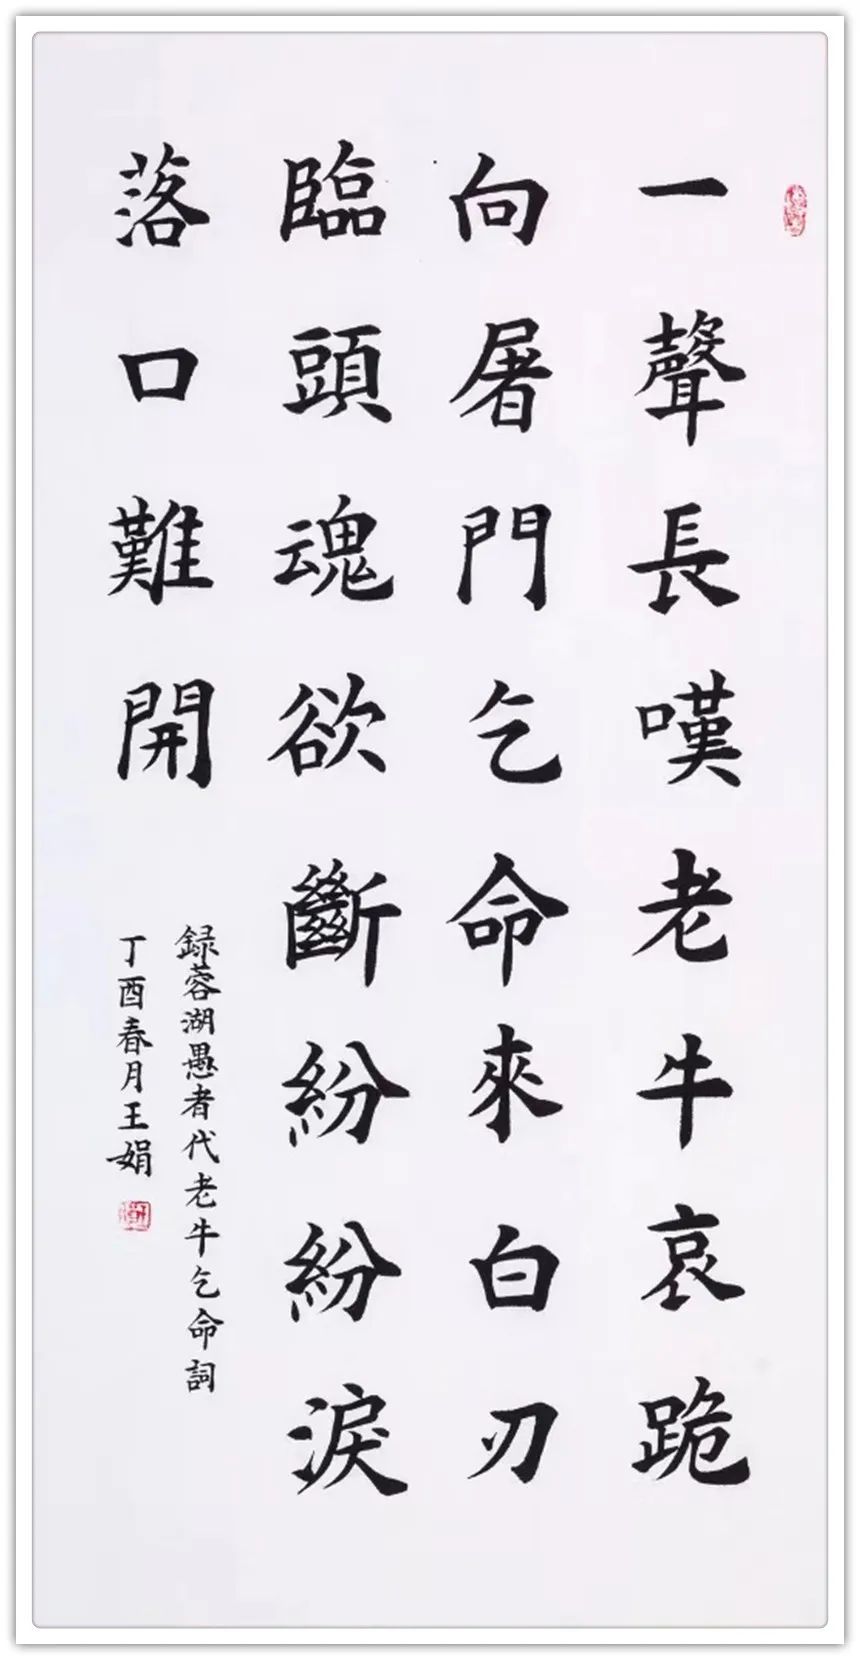 一聲長嘆老牛哀跪
向屠門乞命來白刃
臨頭魂欲斷紛紛淚
落口難開
録蓉湖愚者代老牛乞命詞
丁酉春月王娟